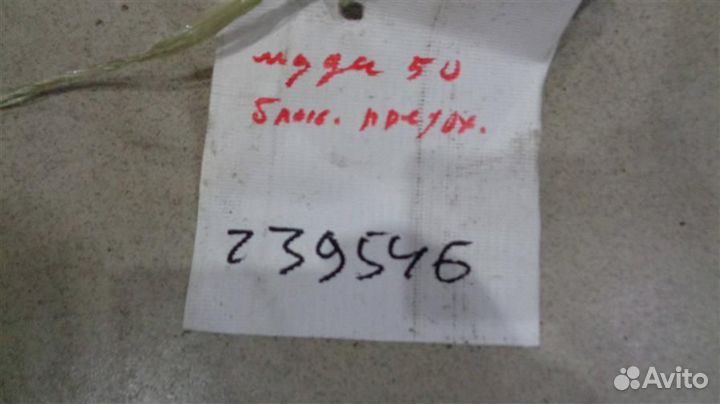 мудги 50
блок. предох.
239546
Avito